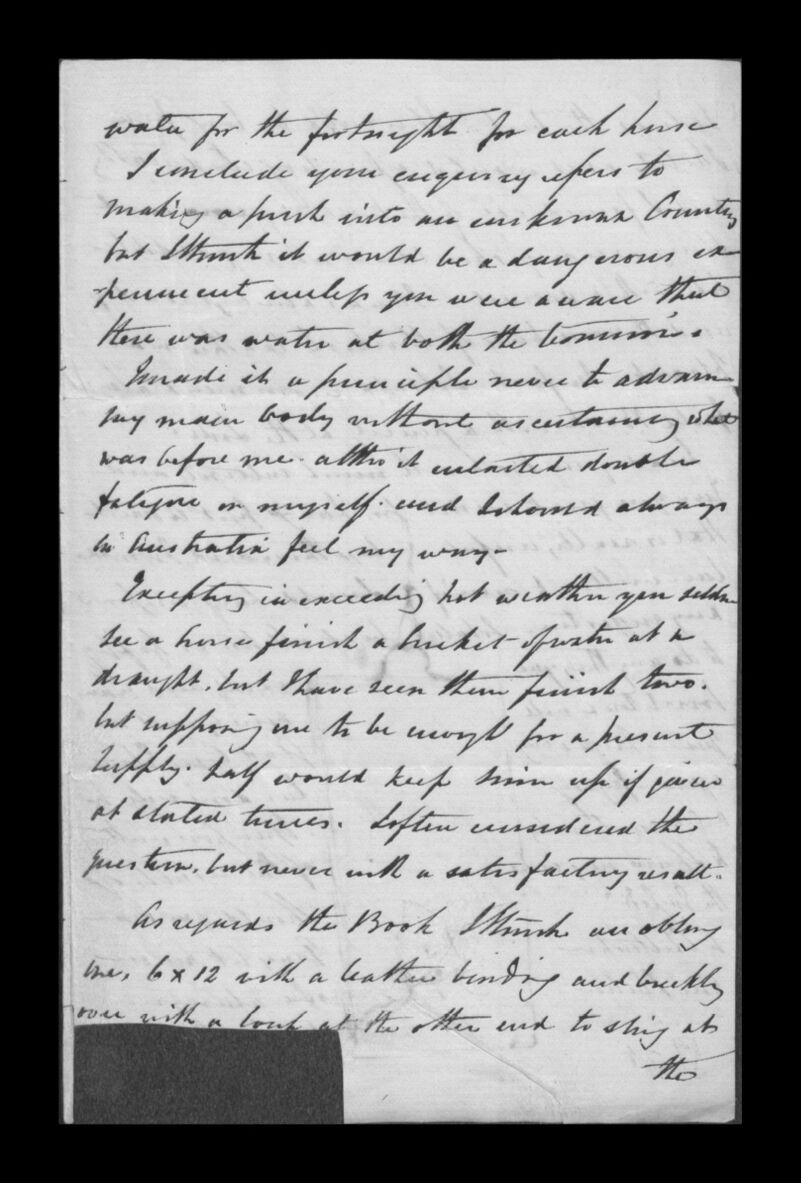 water for the fortnight for each horse
I conclude your enquiry refers to
making a push into an unknown Country
but I think it would be a dangerous ex-
-periment unless you were aware that
there was water at both the termini.
I made it a principle never to advance
my main body without ascertaining what
was before me. altho' it entailed double
fatigue on myself. and I should always
in Australia feel my way-
Excepting in exceeding hot weather you seldom
see a horse finish a bucket of water at a
draught, but I have seen them finish two.
but supposing one to be enough for a present
supply. half would keep him up if given
at stated times. I often considered the
question, but never with a satisfactory result.
As regards the Book I think an oblong
one, 6 x 12 with a leather binding and buckling
over with a loop at the other end to sling at
the